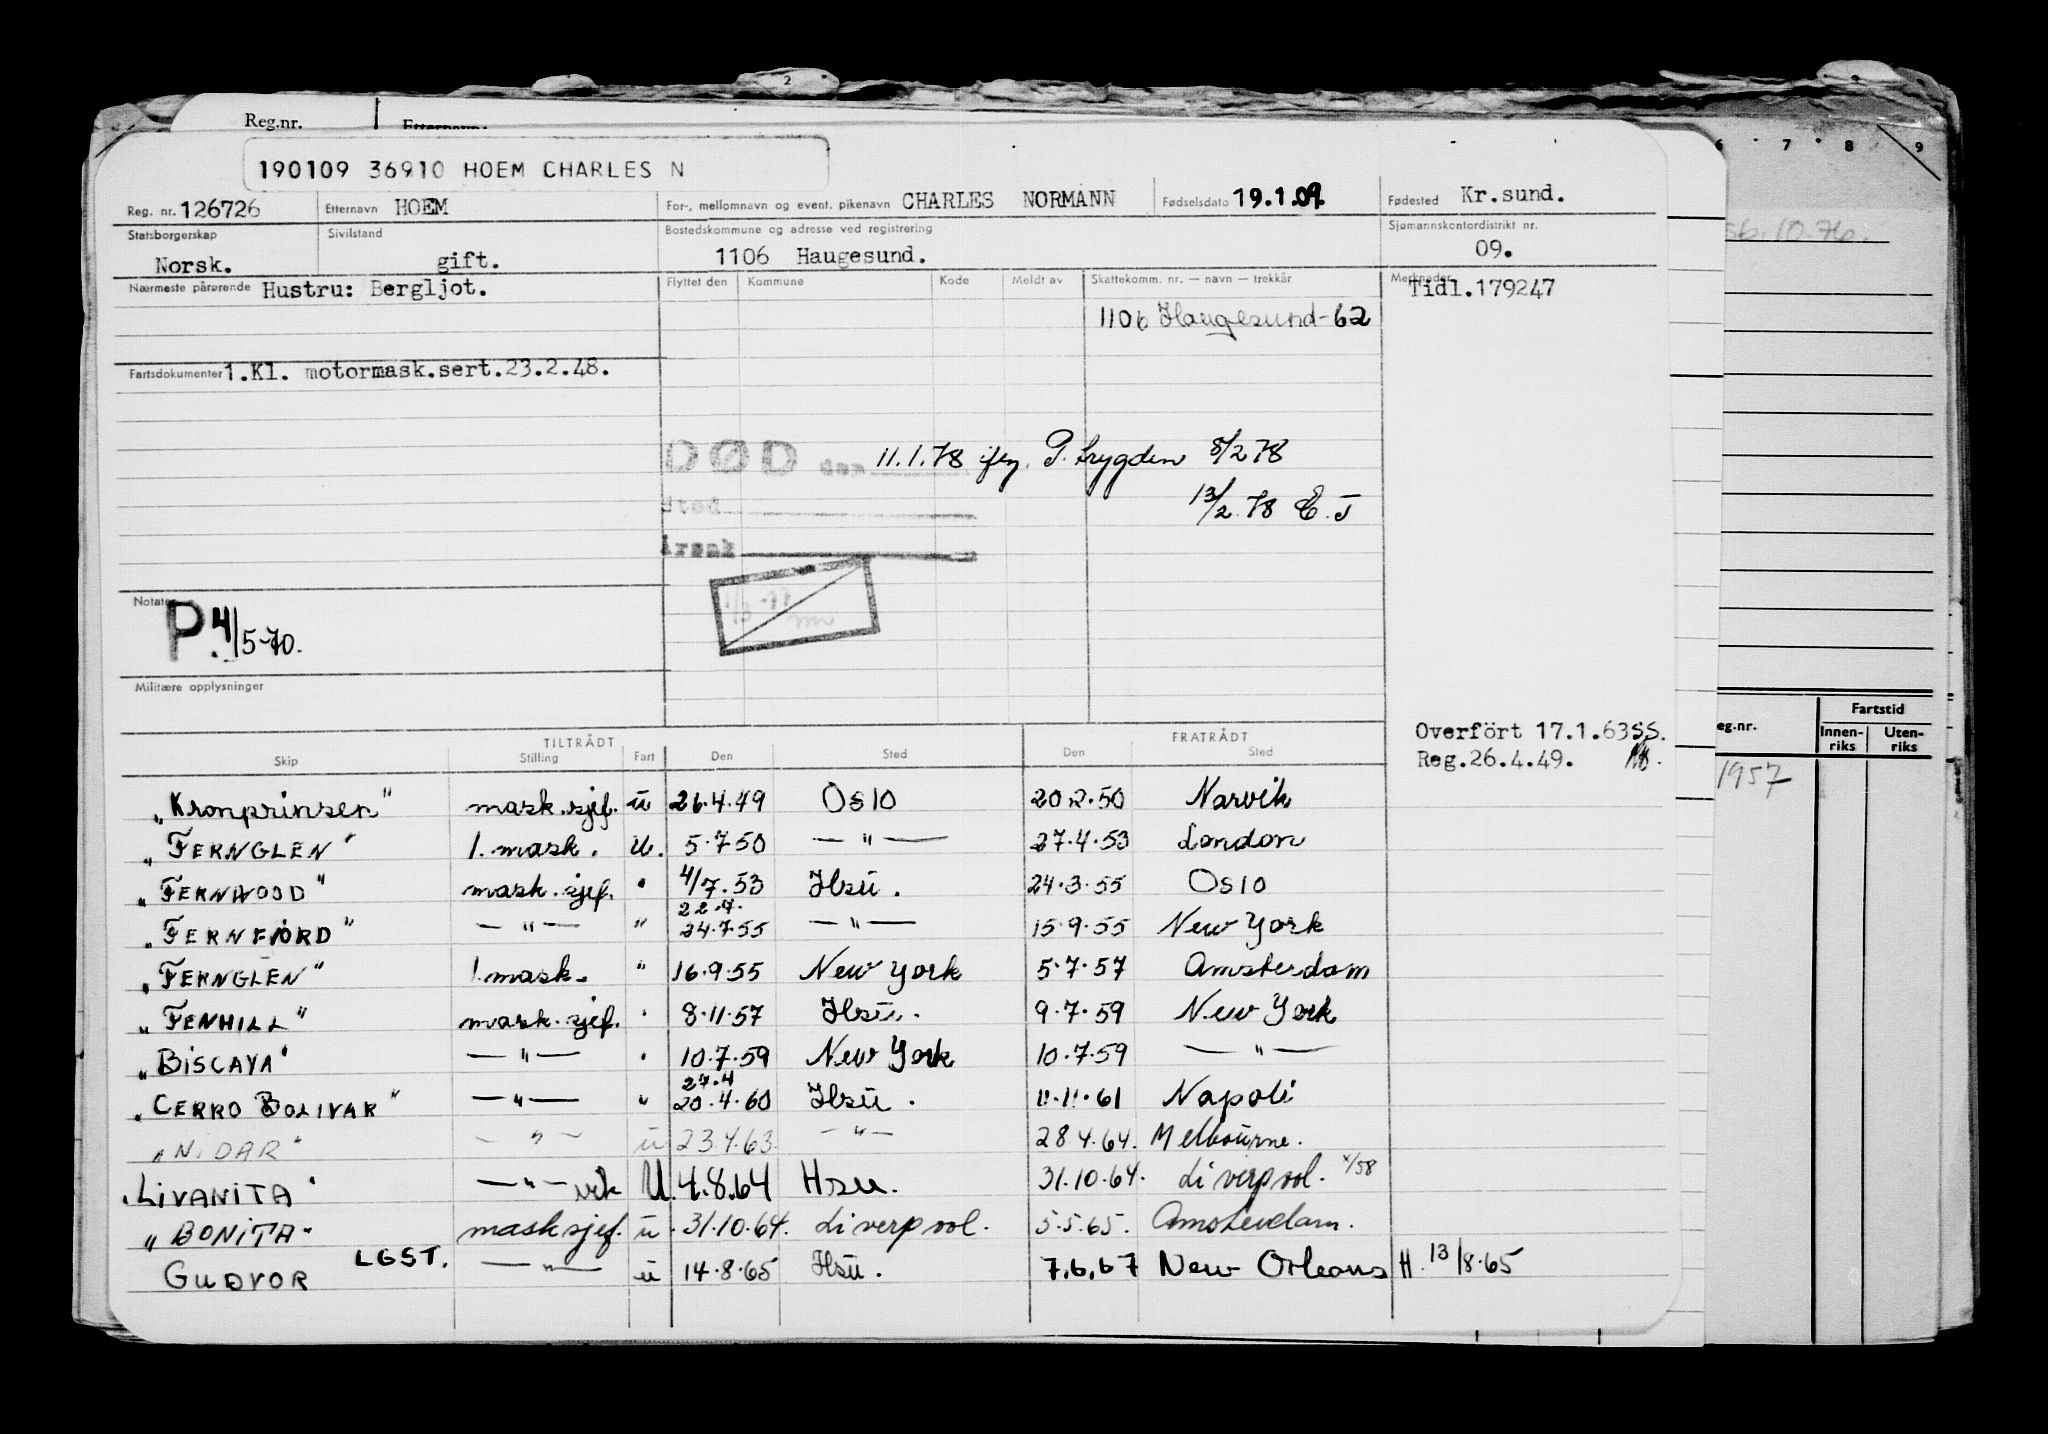 2
Reg.nr.
Etternavn:
6 7 8 9
190109 36910 HOEM CHARLES N
Reg. nr. 126726 Etternavn HOEM For-, mellomnavn og event. pikenavn CHARLES NORMANN Fødselsdato 19.1.09. Fødested Kr.sund.
Statsborgerskap Sivilstand Bostedskommune og adresse ved registrering Sjømannskontordistrikt nr.
Norsk. gift. 1106 Haugesund. 09.
Nærmeste pårørende Hustru: Bergljot. Flyttet den Kommune Kode Meldt av Skattekomm. nr. — navn — trekkår Merknader Tidl.179247
1106 Haugesund-62
Fartsdokumenter 1.Kl. motormask.sert.23.2.48.
DØD den 11.1.78 ifg. P. Trygden 8/2 78
Sted 13/2.78 E.J
Årsak
Notater
P. 4/5-70.
Militære opplysninger
Overfört 17.1.63SS.
Reg.26.4.49.
TILTRÅDT FRATRÅDT
Skip Stilling Fart Den Sted Den Sted
"Kronprinsen" mask.sjef. ü 26.4.49 Oslo 20.2.50 Narvik
"FERNGLEN" 1. mask. u. 5.7.50 — " — 27.4.53 London
"FERNWOOD" mask.sjef. " 4/7.53 Hsu. 24.3.55 Oslo
22.7.
"FERNFJORD" — " — " 24.7.55 — " — 15.9.55 New York
"FERNGLEN" 1.mask. " 16.9.55 New York 5.7.57 Amsterdam
"FENHILL" mask.sjef. " 8.11.57 Hsu. 9.7.59 New York
"BISCAYA" — " — " 10.7.59 New York 10.7.59 — " —
27.4
"CERRO BOLIVAR" — " — " 20.4.60 Hsu. 11.11.61 Napoli
"NIDAR" — " — ü 23.4.63 — " — 28.4.64. Melbourne.
"LIVANITA" — " — vik U. 4.8.64 Hsu. 31.10.64. Liverpool. x/58
"BONITA" masksjef. ü. 31.10.64. Liverpool. 5.5.65. Amsterdam.
GUDVOR LGST. — " — ü 14.8.65 Hsü. 7.6.67 New Orleans H. 13/8.65
56.10.76.
eg.nr. Fartstid
Innen-riks Uten-riks
1957